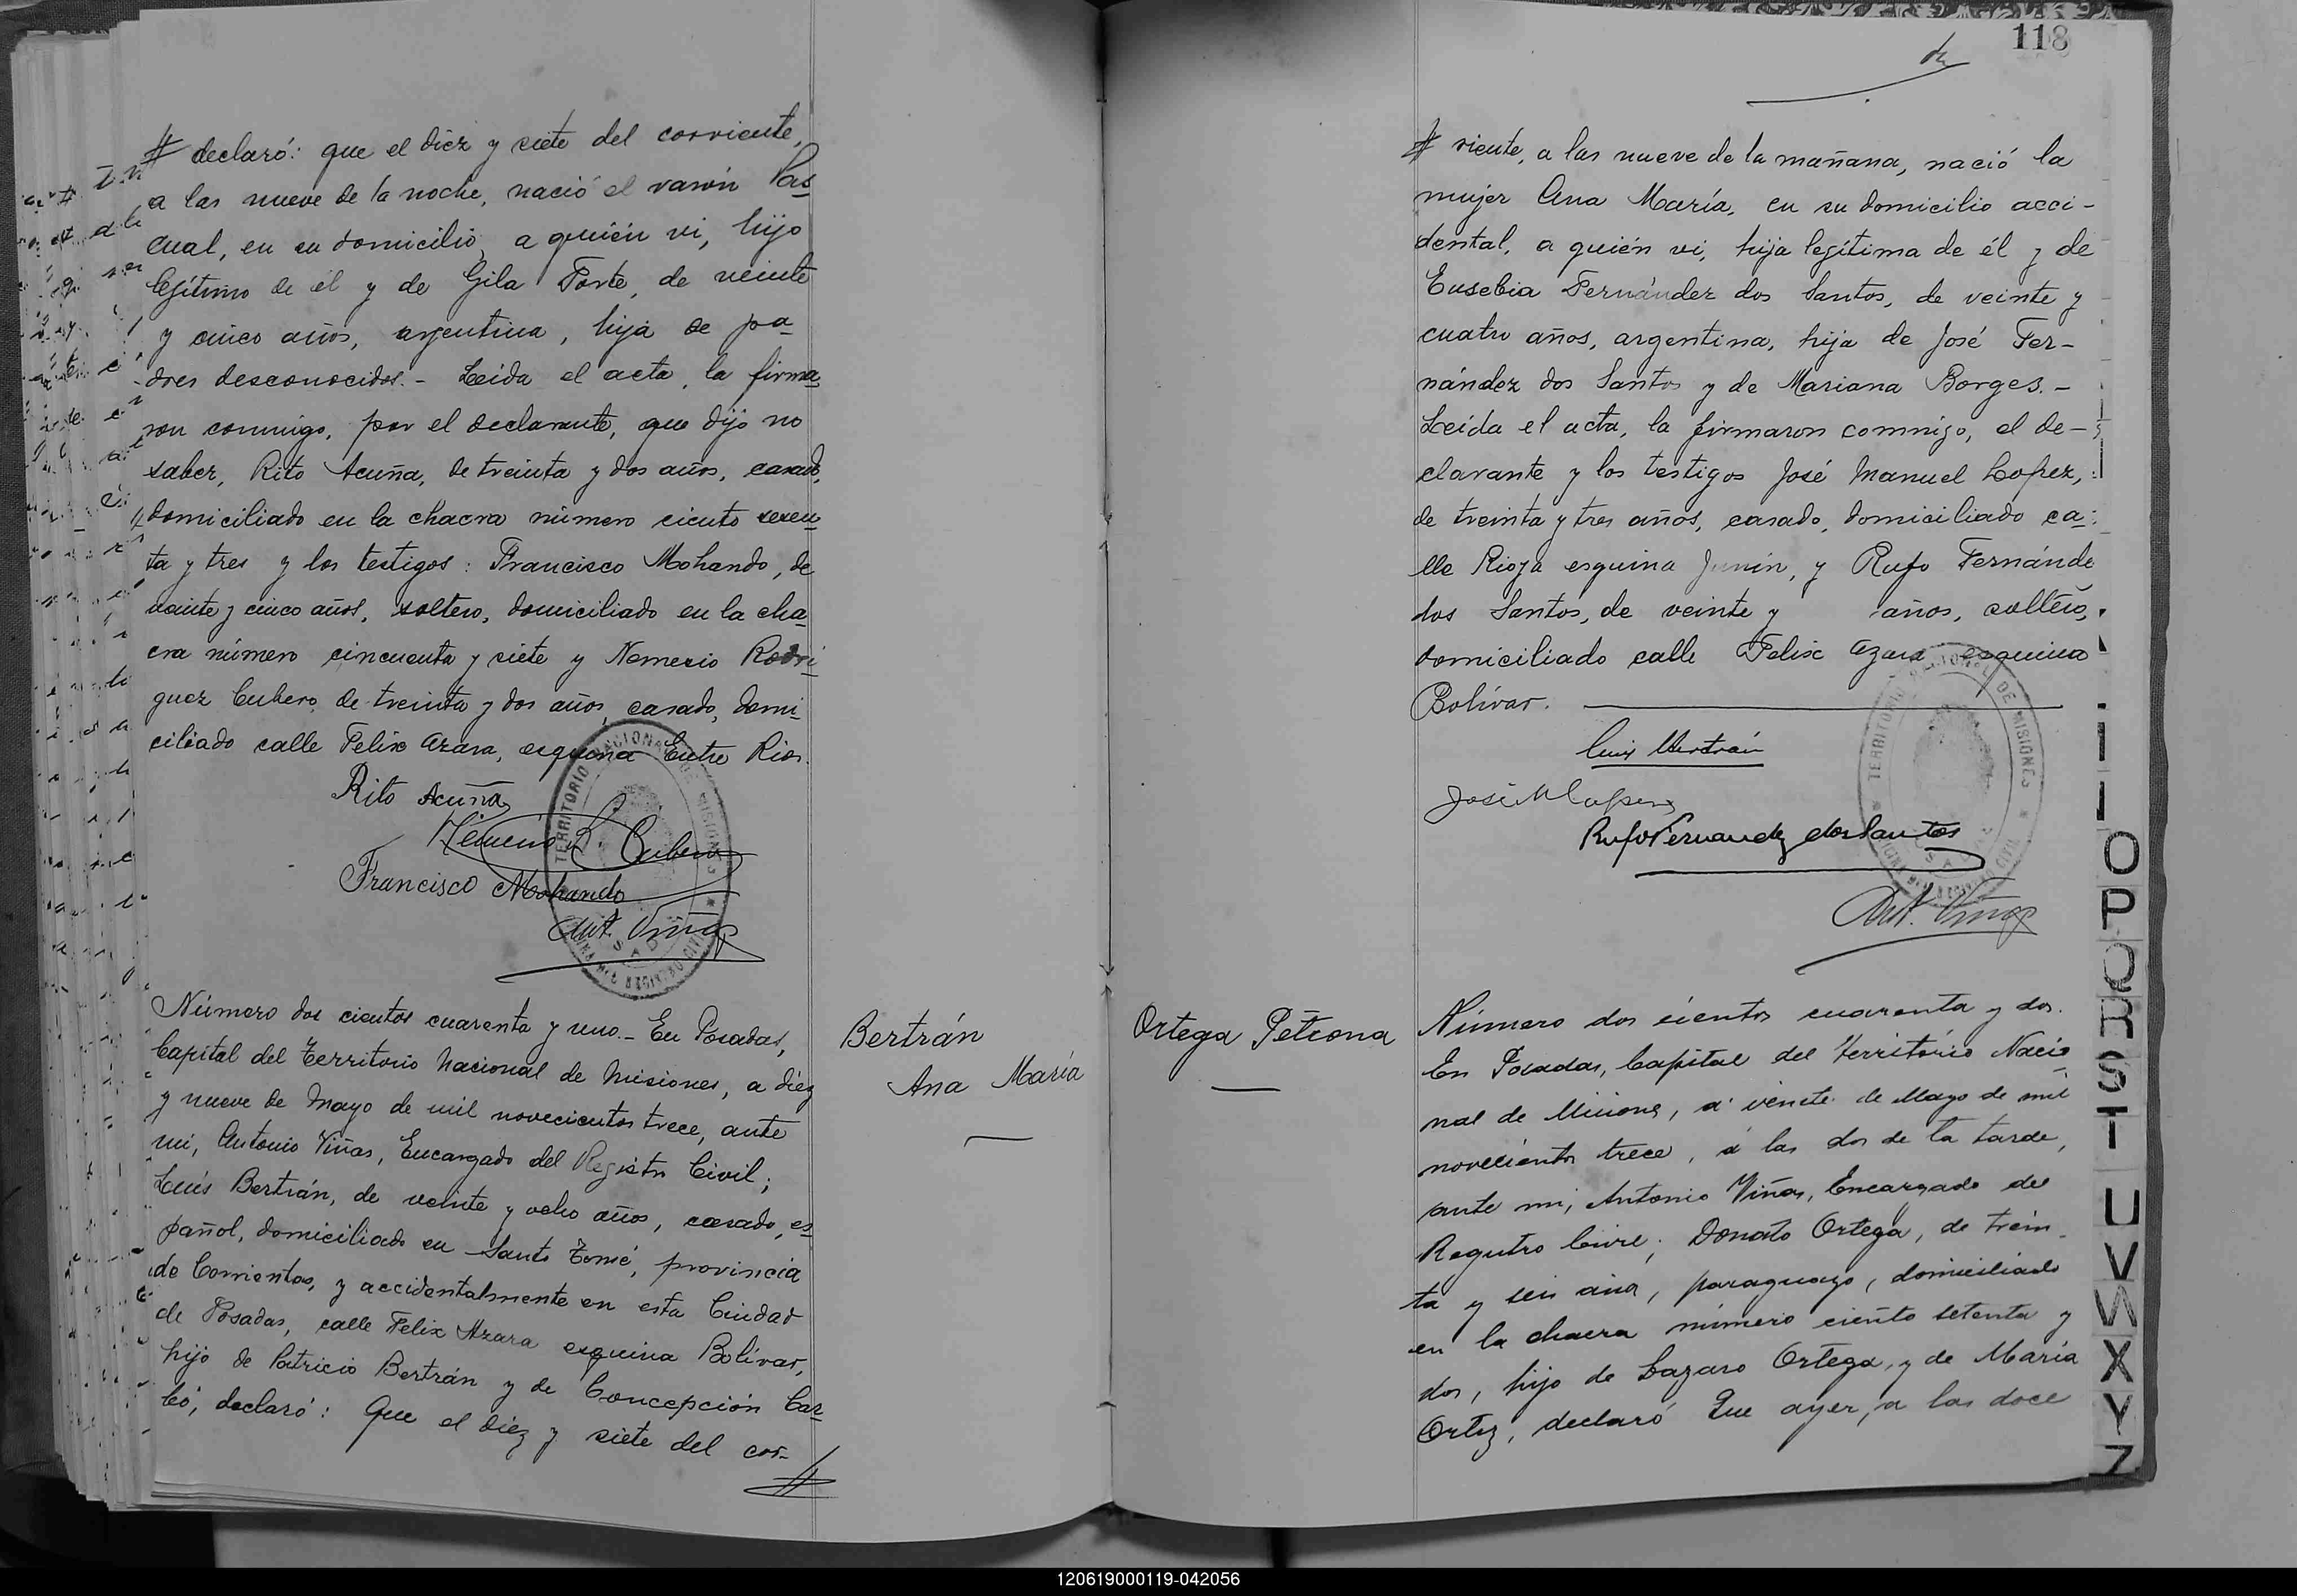 # declaró: que el diez y siete del corriente,
a las nueve de la noche, nació el varón Pas
cual, en su domicilio, a quién vi, hijo
legítimo de él y de Gila Forte, de veinte
y cinco años, argentina, hija de pa
dres desconocidos.- Leida el acta, la firma
ron conmigo, por el declarante, que dijo no
saber, Rito Acuña, de treinta y dos años, casado,
domiciliado en la chacra número ciento sesen
ta y tres y los testigos: Francisco Mohando, de
veinte y cinco años, soltero, domiciliado en la cha
cra número cincuenta y siete y Nemesio Rodri
guez Cubero, de treinta y dos años, casado, domi-
ciliado calle Felix Azara, esquina Entre Rios.
Rito Acuña
Nemesio R. Cubero
Francisco Mohando
Ant. Viñas
TERRITORIO NACIONAL DE MISIONES
Número dos cientos cuarenta y uno.- En Posadas,
Capital del Territorio Nacional de Misiones, a diez
y nueve de Mayo de mil novecientos trece, ante
mi, Antonio Viñas, Encargado del Registro Civil;
Luís Bertrán, de veinte y ocho años, casado, es
pañol, domiciliado en Santo Tomé, provincia
de Corrientes, y accidentalmente en esta Ciudad
de Posadas, calle Felix Azara esquina Bolívar,
hijo de Patricio Bertrán y de Concepción Car
bó, declaró: Que el diez y siete del cor-
#
Bertrán
Ana María
118
# riente, a las nueve de la mañana, nació la
mujer Ana María, en su domicilio acci-
dental, a quién vi, hija legítima de él y de
Eusebia Fernández dos Santos, de veinte y
cuatro años, argentina, hija de José Fer-
nández dos Santos y de Mariana Borges.-
Leida el acta, la firmaron conmigo, el de-
clarante y los testigos José Manuel Lopez,
de treinta y tres años, casado, domiciliado ca
lle Rioja esquina Junín, y Rufo Fernánde
dos Santos, de veinte y años, soltero,
domiciliado calle Felix Azara esquina
Bolívar.
Luis Bertrán
José M Lopez
Rufo Fernandez dos Santos
Ant. Viñas
TERRITORIO NACIONAL DE MISIONES
Ortega Petrona
Número dos cientos cuarenta y dos.
En Posadas, Capital del Territorio Nacio
nal de Misiones, á veinte de Mayo de mil
novecientos trece, á las dos de la tarde,
ante mi, Antonio Viñas, Encargado del
Registro Civil; Donato Ortega, de trein
ta y seis años, paraguayo, domiciliado
en la chacra número ciento setenta y
dos, hijo de Lazaro Ortega, y de María
Ortiz, declaró Que ayer, a las doce
O
P
Q
R
S
T
U
V
W
X
Y
Z
120619000119-042056